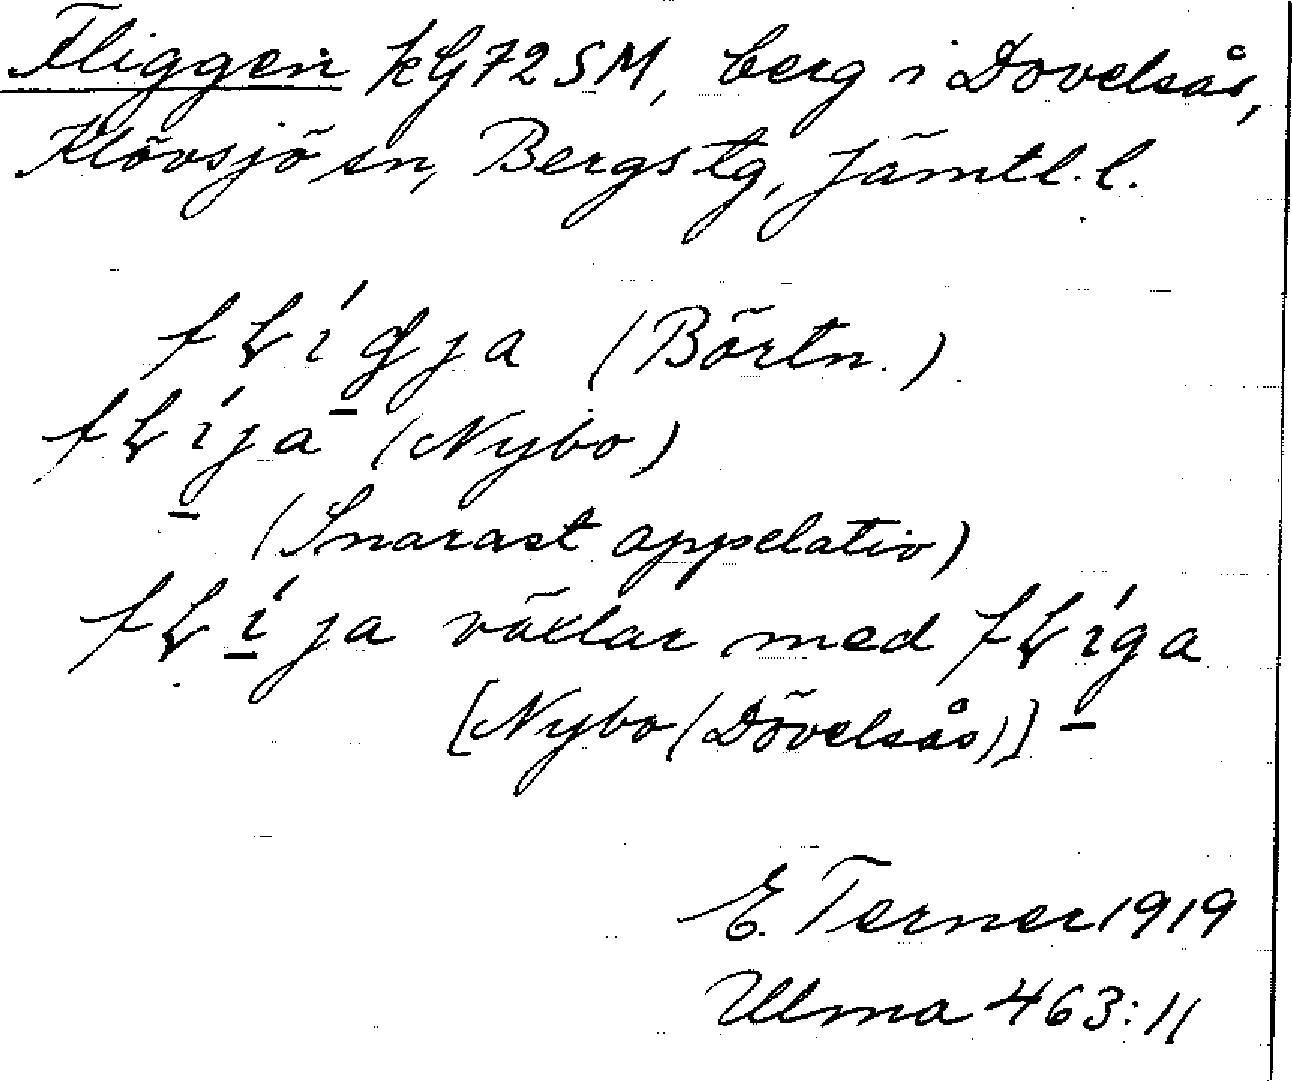 Fliggen kG 72 SM, berg i Dövelsås,
Klövsjö sn, Bergs tg, Jämtl. l.
fłígja (Börtn.)
fłíja (Nybo)
(Snarast appelativ)
fłíja växlar med fłíga
[Nybo (Dövelsås)]
E. Terner 1919
Ulma 463:11